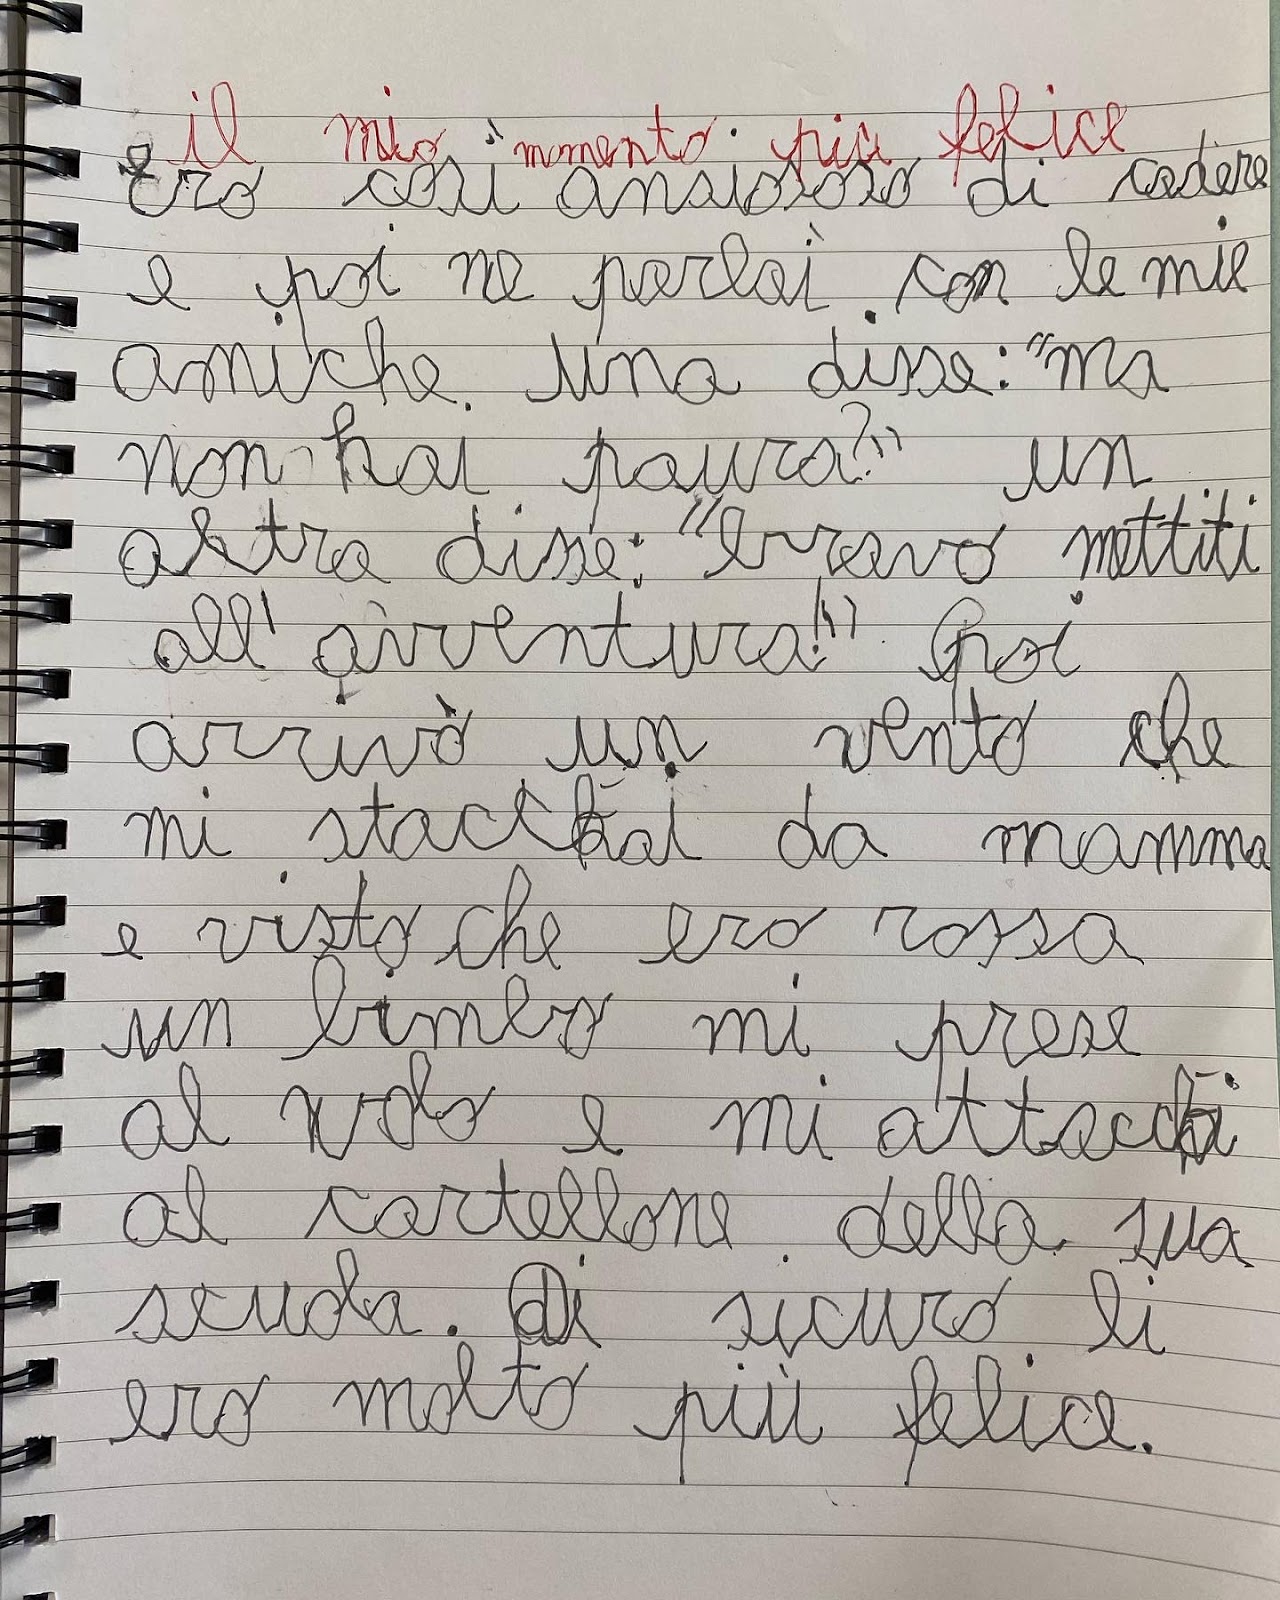 il mio momento più felice
Ero così ansiososo di cadere
e poi ne parlai con le mie
amiche. Una disse: "Ma
non hai paura?" un
altra disse: "bravo mettiti
all'avventura!" Poi
arrivò un vento che
mi stacchai da mamma
e visto che ero rossa
un bimbo mi prese
al volo e mi attacchi
al cartellone della sua
scuola. Di sicuro li
ero molto più felice.